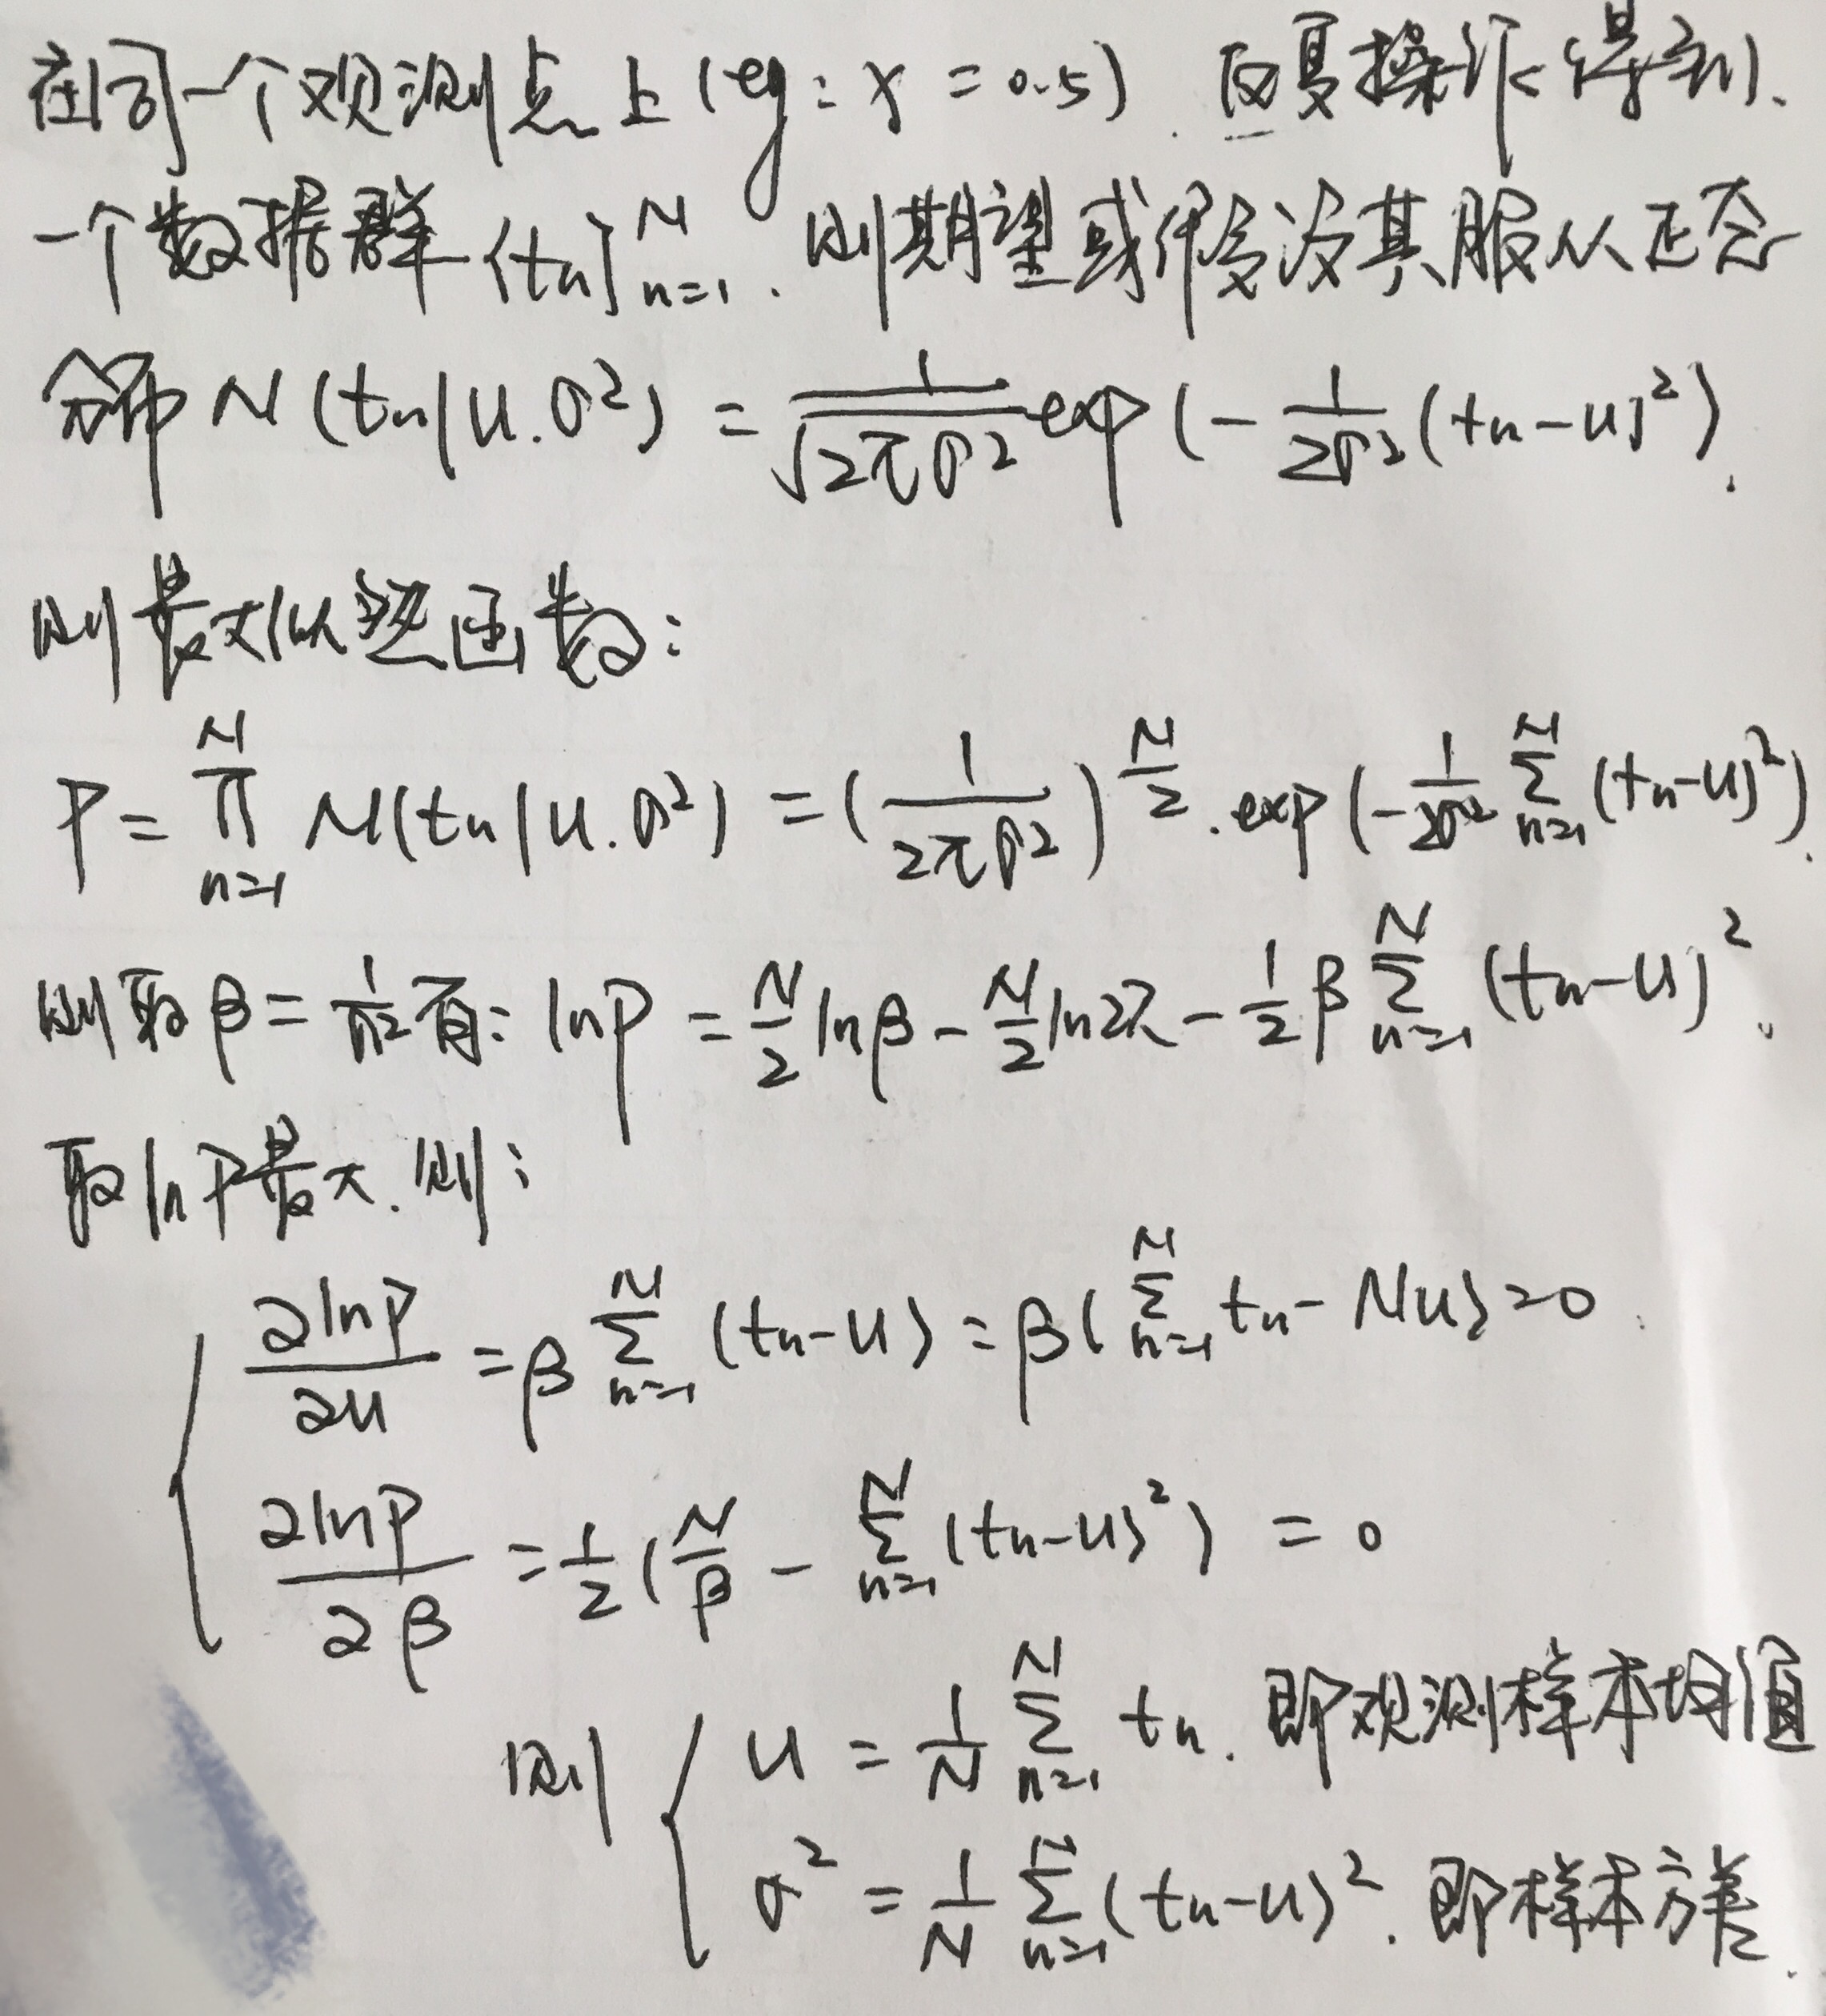 在同一个观测点上(eg: x = 0.5). 反复操作得到.
一个数据群{tn}_{n=1}^{N}. 则期望或假设其服从正态
分布 N(tn|u.σ²) = 1/√(2πσ²) exp(-1/(2σ²)(tn-u)²).
则最大似然函数:
P = ∏_{n=1}^{N} N(tn|u.σ²) = (1/(2πσ²))^{N/2}. exp(-1/(2σ²) ∑_{n=1}^{N}(tn-u)²).
则取 β = 1/σ² 有: lnP = N/2 lnβ - N/2 ln2π - 1/2 β ∑_{n=1}^{N} (tn-u)².
取lnP最大. 则:
∂lnP/∂u = β ∑_{n=1}^{N} (tn-u) = β(∑_{n=1}^{N} tn - Nu) = 0.
∂lnP/∂β = 1/2 (N/β - ∑_{n=1}^{N} (tn-u)²) = 0
则 { u = 1/N ∑_{n=1}^{N} tn. 即观测样本均值
σ² = 1/N ∑_{n=1}^{N} (tn-u)². 即样本方差.